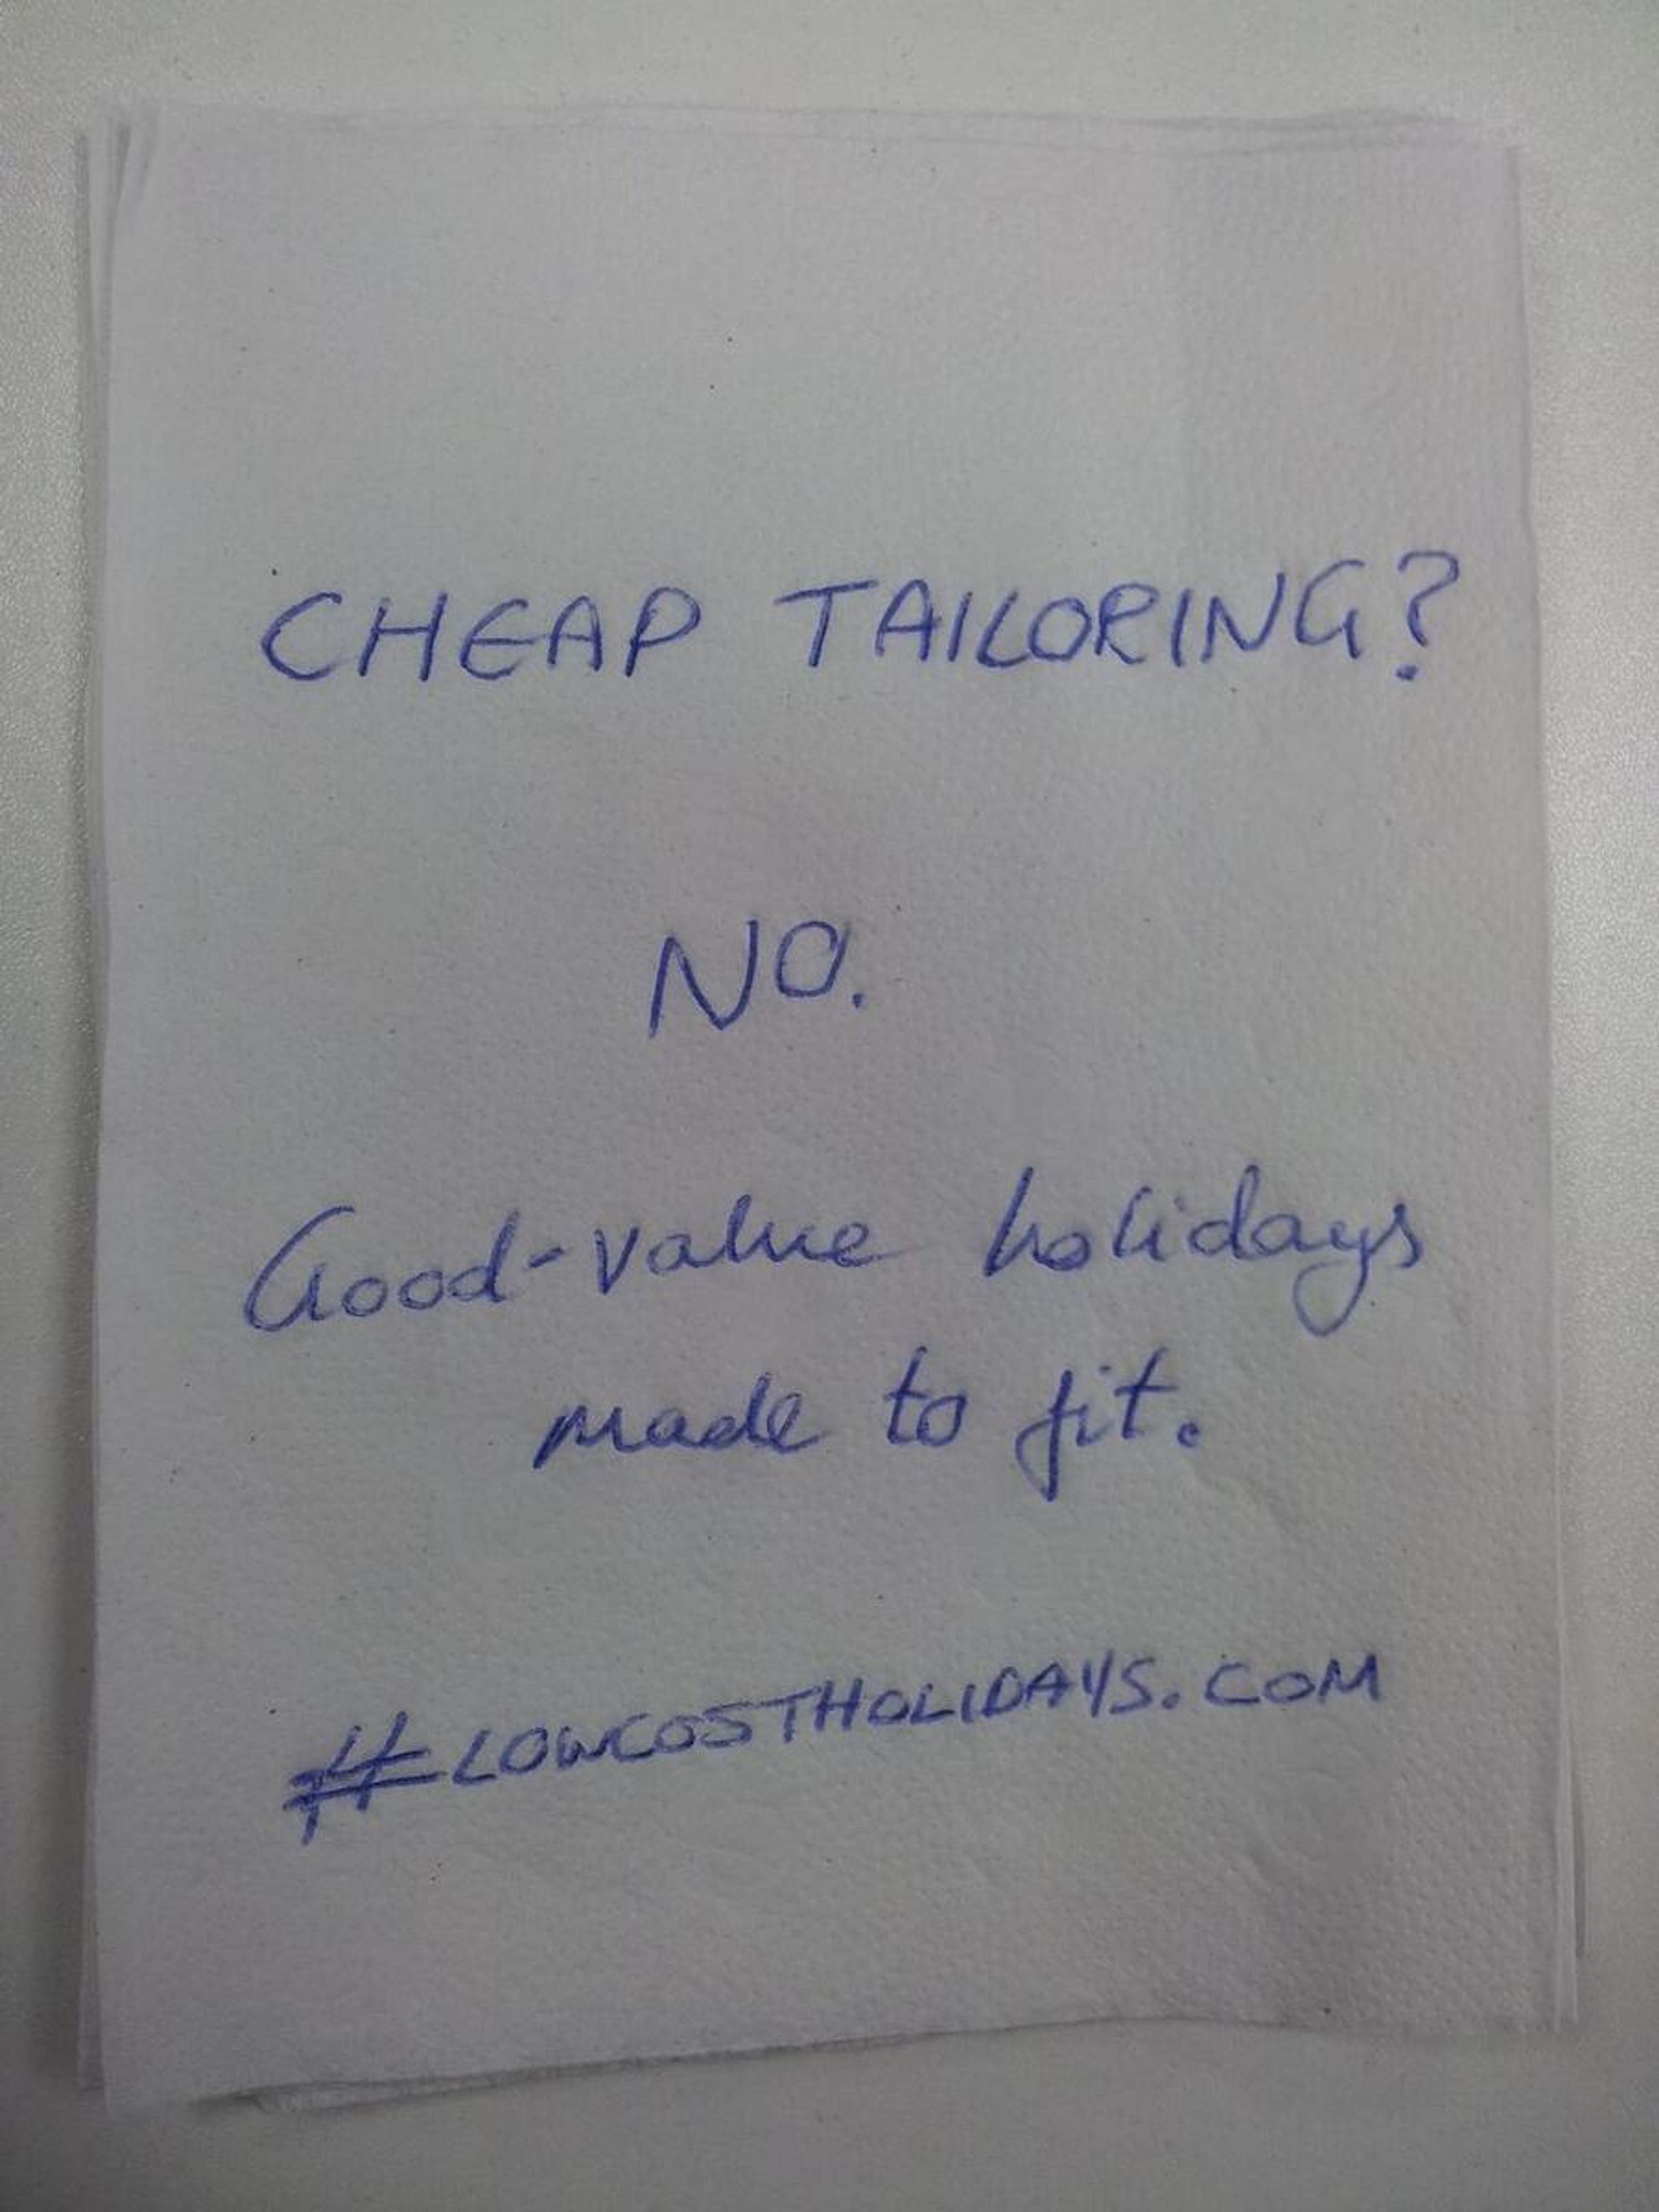 CHEAP TAILORING?
NO.
Good-value holidays
made to fit.
#LOWCOSTHOLIDAYS.COM